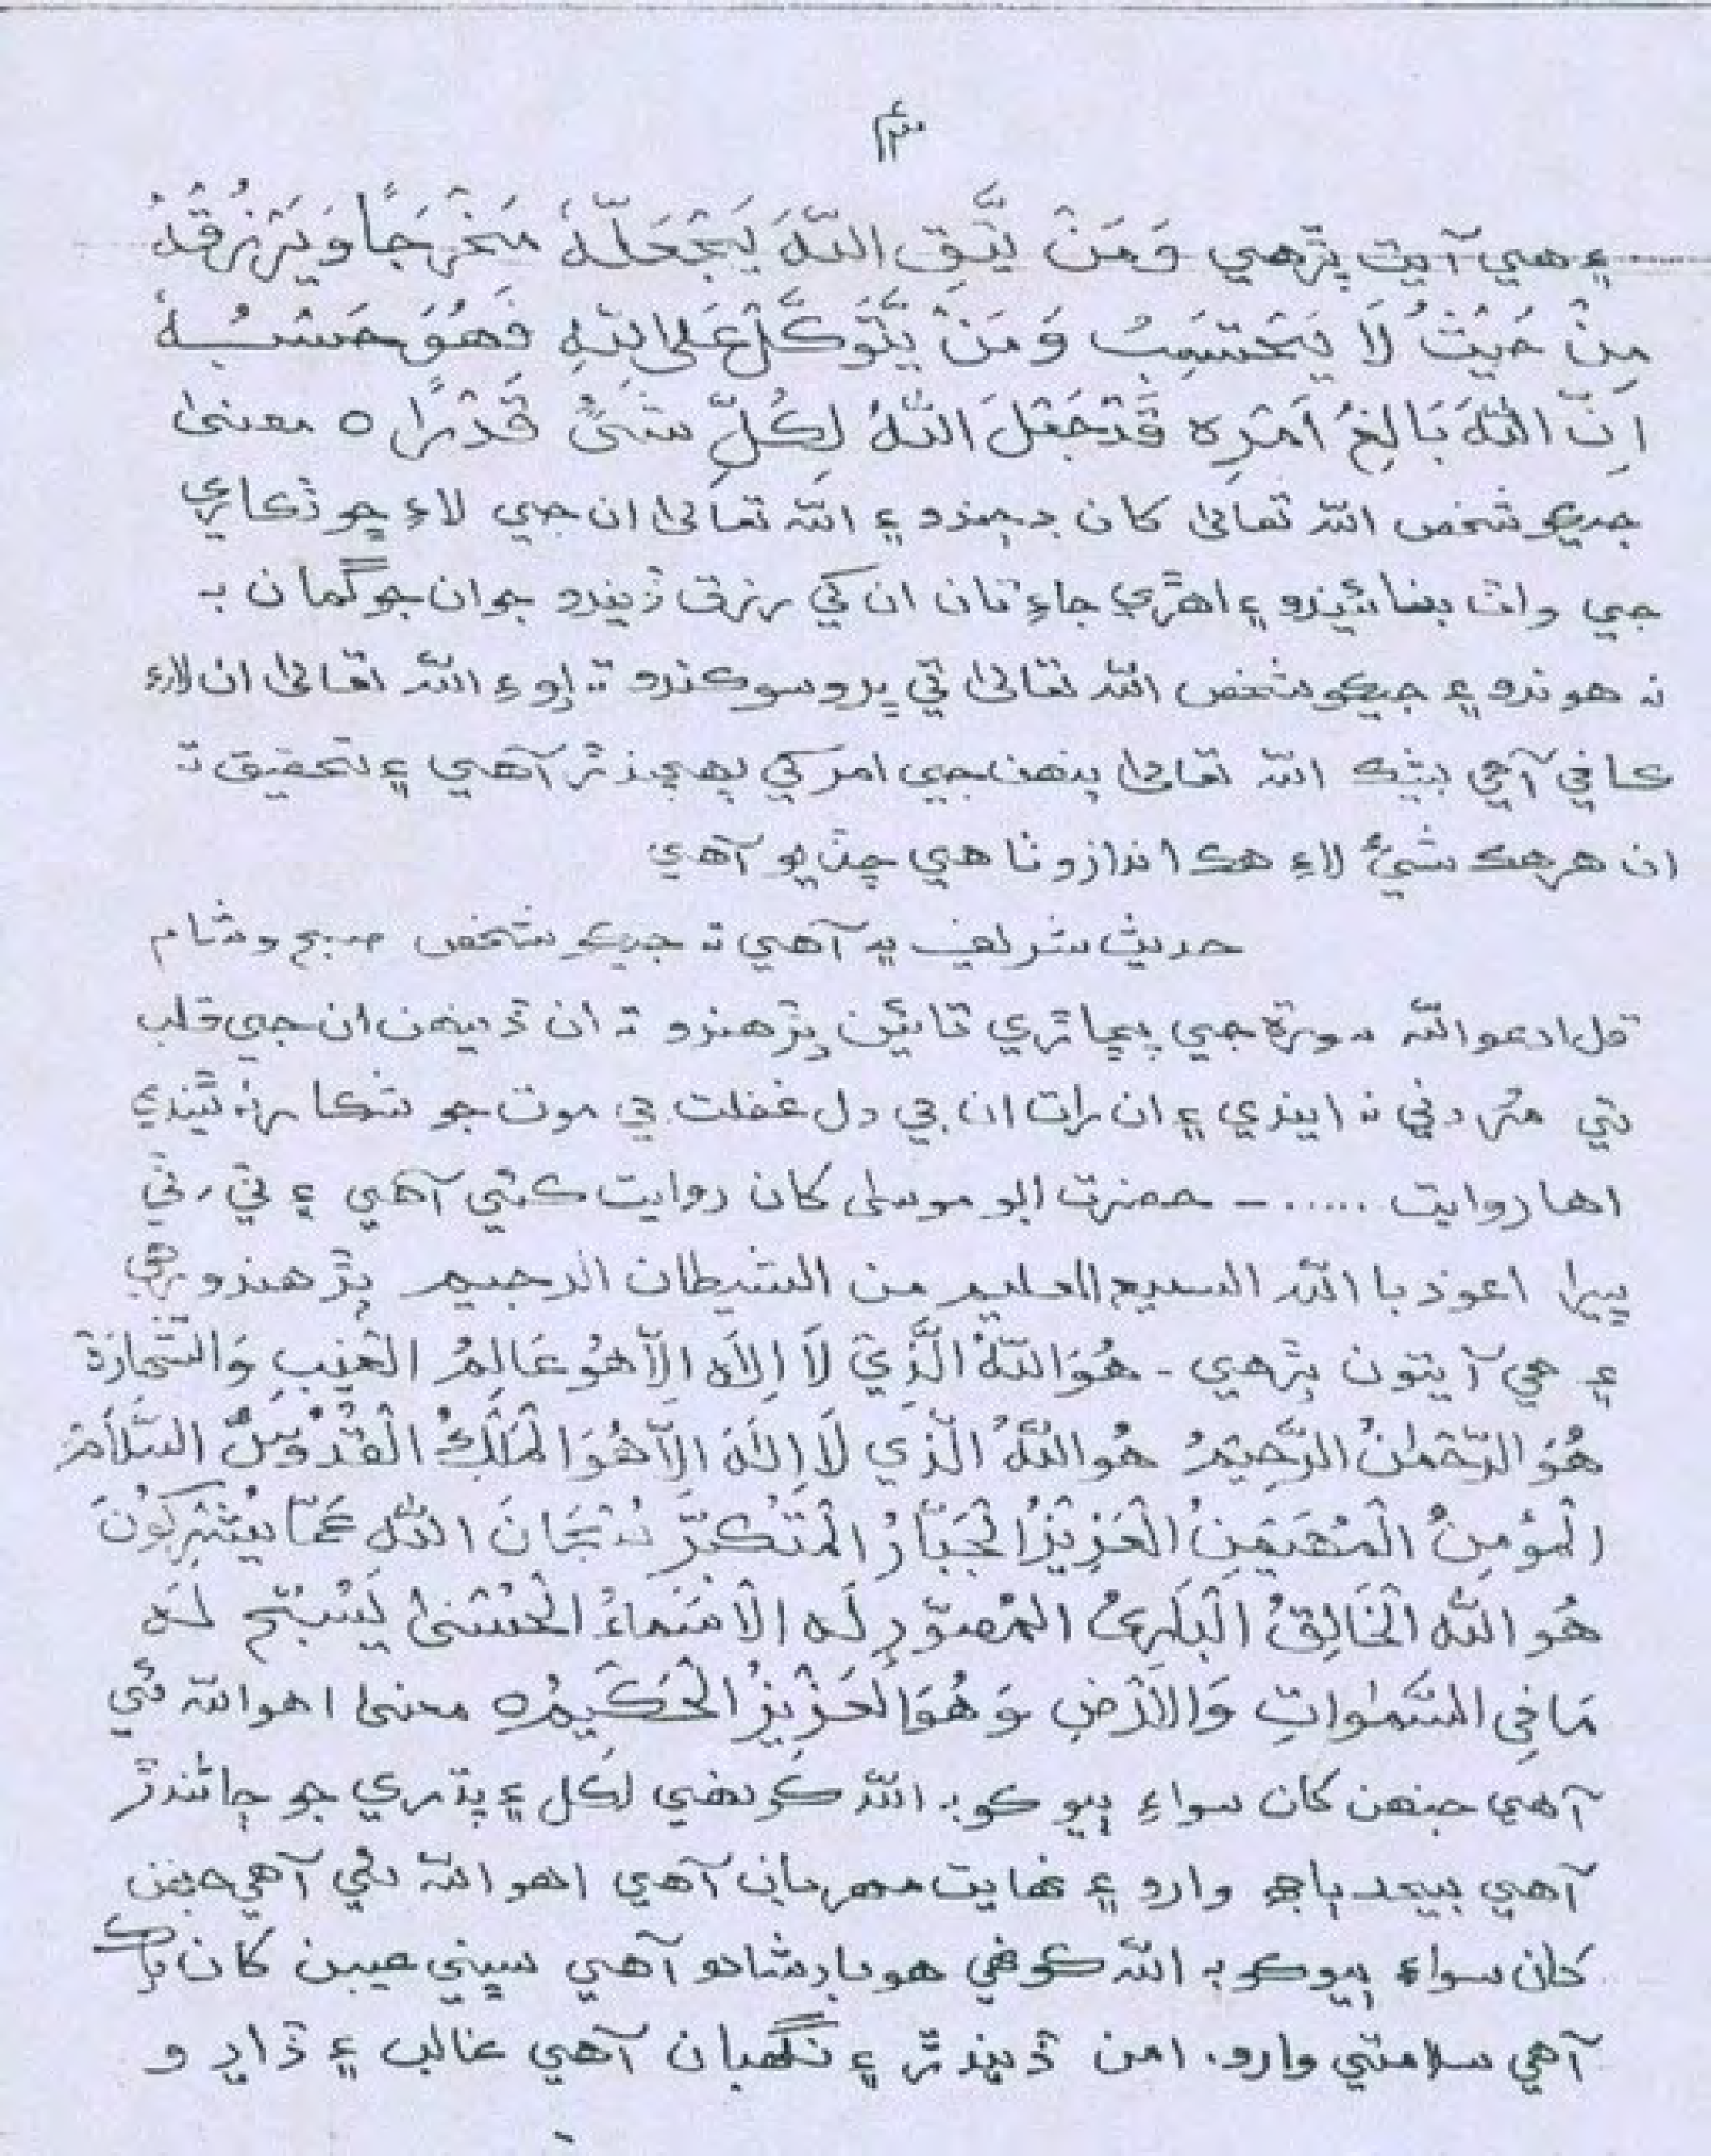 ۽ هي آيت پڙهي وَمَنْ يَّتَّقِ اللّٰهَ يَجْعَلْ لَّهٗ مَخْرَجًا وَيَرْزُقْهُ
مِنْ حَيْثُ لَا يَحْتَسِبُ وَمَنْ يَّتَوَكَّلْ عَلَى اللّٰهِ فَهُوَ حَسْبُهٗ
اِنَّ اللّٰهَ بَالِغُ اَمْرِهٖ قَدْ جَعَلَ اللّٰهُ لِكُلِّ شَىْءٍ قَدْرًا ٥ معنيٰ
جيڪو شخص اللّٰه تعاليٰ کان ڊڄندو ۽ اللّٰه تعاليٰ ان جي لاءِ ڇوٽڪاري
جي واٽ بنائيندو ۽ اهڙي جاءِ تان ان کي رزق ڏيندو جو ان جو گمان بہ
نہ هوندو ۽ جيڪو شخص اللّٰه تعاليٰ تي ڀروسو ڪندو تہ اللّٰه تعاليٰ ان لاءِ
ڪافي آهي بيشڪ اللّٰه تعاليٰ پنهنجي امر کي پهچندڙ آهي ۽ تحقيق تہ
ان هر هڪ شيءِ لاءِ هڪ اندازو ٺاهي ڇڏيو آهي
حديث شريف ۾ آهي تہ جيڪو شخص صبح و شام
قل ادعوا اللّٰه سورة جي پڇاڙي تائين پڙهندو تہ ان ڏينهن ان جي قلب
تي مردني نہ ايندي ۽ ان رات ان جي دل غفلت جي موت جو شڪار نہ ٿيندي
اها روايت ..... - حضرت ابو موسيٰ کان روايت ڪئي آهي ۽ ٽي ٽي
ڀيرا اعوذ با اللّٰه السميع العليم من الشيطان الرجيم پڙهندو رهي
۽ هي آيتون پڙهي - هُوَ اللّٰهُ الَّذِيْ لَا اِلٰهَ اِلَّا هُوَ عَالِمُ الْغَيْبِ وَالشَّهَادَة
هُوَ الرَّحْمٰنُ الرَّحِيْمُ هُوَ اللّٰهُ الَّذِي لَا اِلٰهَ اِلَّا هُوَ الْمَلِكُ الْقُدُّوْسُ السَّلَامُ
الْمُؤْمِنُ الْمُهَيْمِنُ الْعَزِيْزُ الْجَبَّارُ الْمُتَكَبِّرُ سُبْحَانَ اللّٰهِ عَمَّا يُشْرِكُوْنَ
هُوَ اللّٰهُ الْخَالِقُ الْبَارِئُ الْمُصَوِّرُ لَه الْاَسْمَاءُ الْحُسْنىٰ يُسَبِّحُ لَهٗ
مَا فِى السَّمٰوَاتِ وَالْاَرْضِ وَهُوَ الْعَزِيْزُ الْحَكِيْمُ ٥ معنيٰ اهو اللّٰه ئي
آهي جنهن کان سواءِ ٻيو ڪو بہ اللّٰه ڪونهي لڪل ۽ پڌري جو ڄاڻندڙ
آهي بيحد ٻاجھ وارو ۽ نهايت مهربان آهي اهو اللّٰه ئي آهي جنهن
کان سواءِ ٻيو ڪو بہ اللّٰه ڪونهي هو بادشاهه آهي سڀني عيبن کان پاڪ
آهي سلامتي وارو. امن ڏيندڙ ۽ نگهبان آهي غالب ۽ ڏاڍو